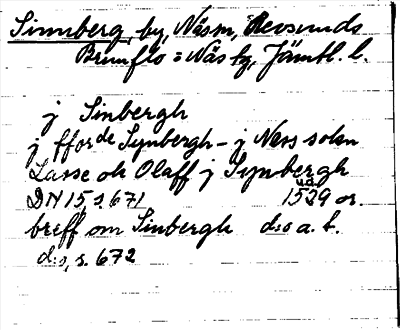 Sinnberg, by, Näsm, Revsunds
Brunflo = Näs tg, Jämtl. l.
j Sinbergh
j fforde Synbergh - j Nes sokn
Lasse ok Olaff j Synbergh
DN 15 s. 671 1529 or.
breff om Sinbergh d:o a. b.
d:o, s. 672